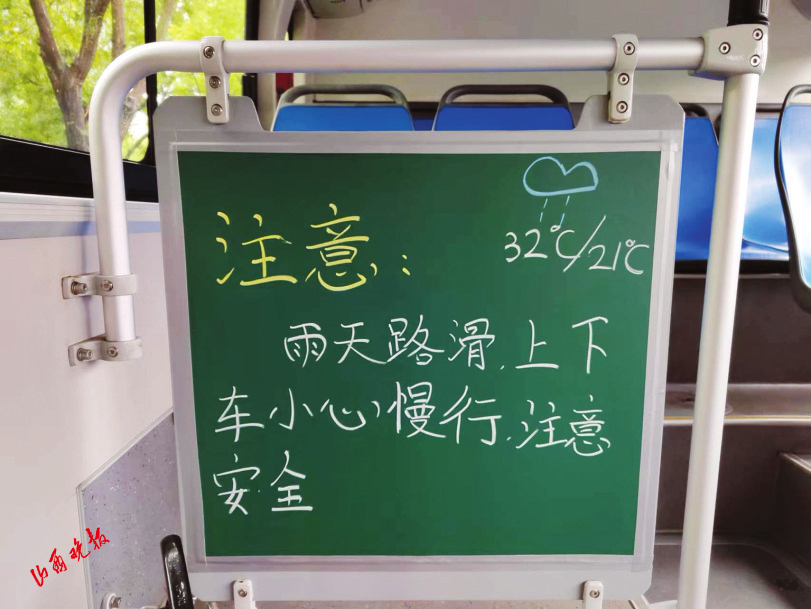 32℃/21℃
注意：
雨天路滑,上下
车小心慢行,注意
安全
山西晚报